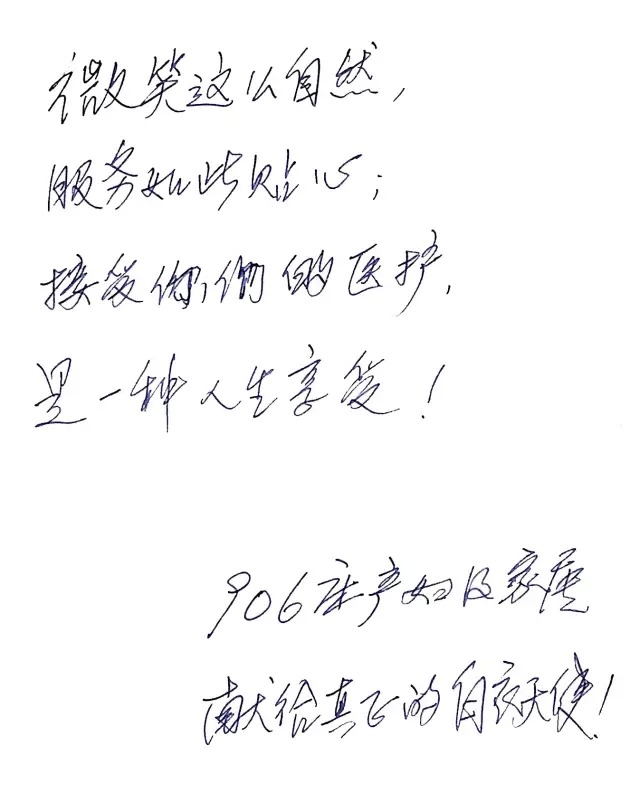 微笑这么自然,
服务如此贴心;
接受你们的医护,
是一种人生享受!
906床产妇及家属
献给真正的白衣天使!